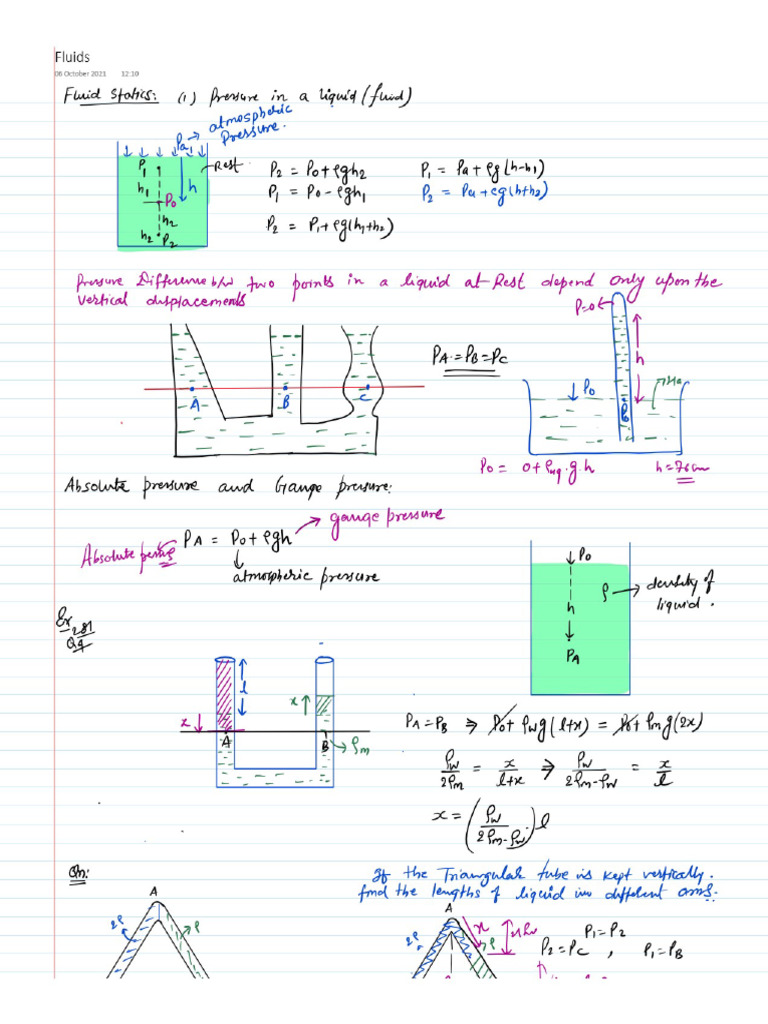 Fluids
06 October 2021 12:10
Fluid Statics: (1) Pressure in a liquid (fluid)
Pa → atmospheric
Pressure.
P1
h1
P0
h
h2
h2 P2
Rest
P2 = P0 + ρgh2
P1 = P0 - ρgh1
P2 = P1 + ρg(h1+h2)
P1 = Pa + ρg(h-h1)
P2 = Pa + ρg(h+h2)
Pressure Difference b/w two points in a liquid at Rest depend only upon the
vertical displacements
A B C
PA = PB = PC
P=0
h
P0
P0
Hg
P0 = 0 + ρHg.g.h h = 76 cm
Absolute pressure and Gauge pressure:
Absolute → PA = P0 + ρgh → gauge pressure
atmospheric pressure
P0
h
PA
ρ → density of
liquid.
Ex 281
Q4
l
x
x
A B → ρm
PA = PB ⇒ P0 + ρwg(l+x) = P0 + ρmg(2x)
ρw/2ρm = x/l+x ⇒ ρw/2ρm-ρw = x/l
x = (ρw/2ρm-ρw) l
Qn:
If the Triangular tube is kept vertically.
find the lengths of liquid in different arms.
A
2ρ ρ
A
2ρ ρ
x
P1 = P2
P2 = PC , P1 = PB